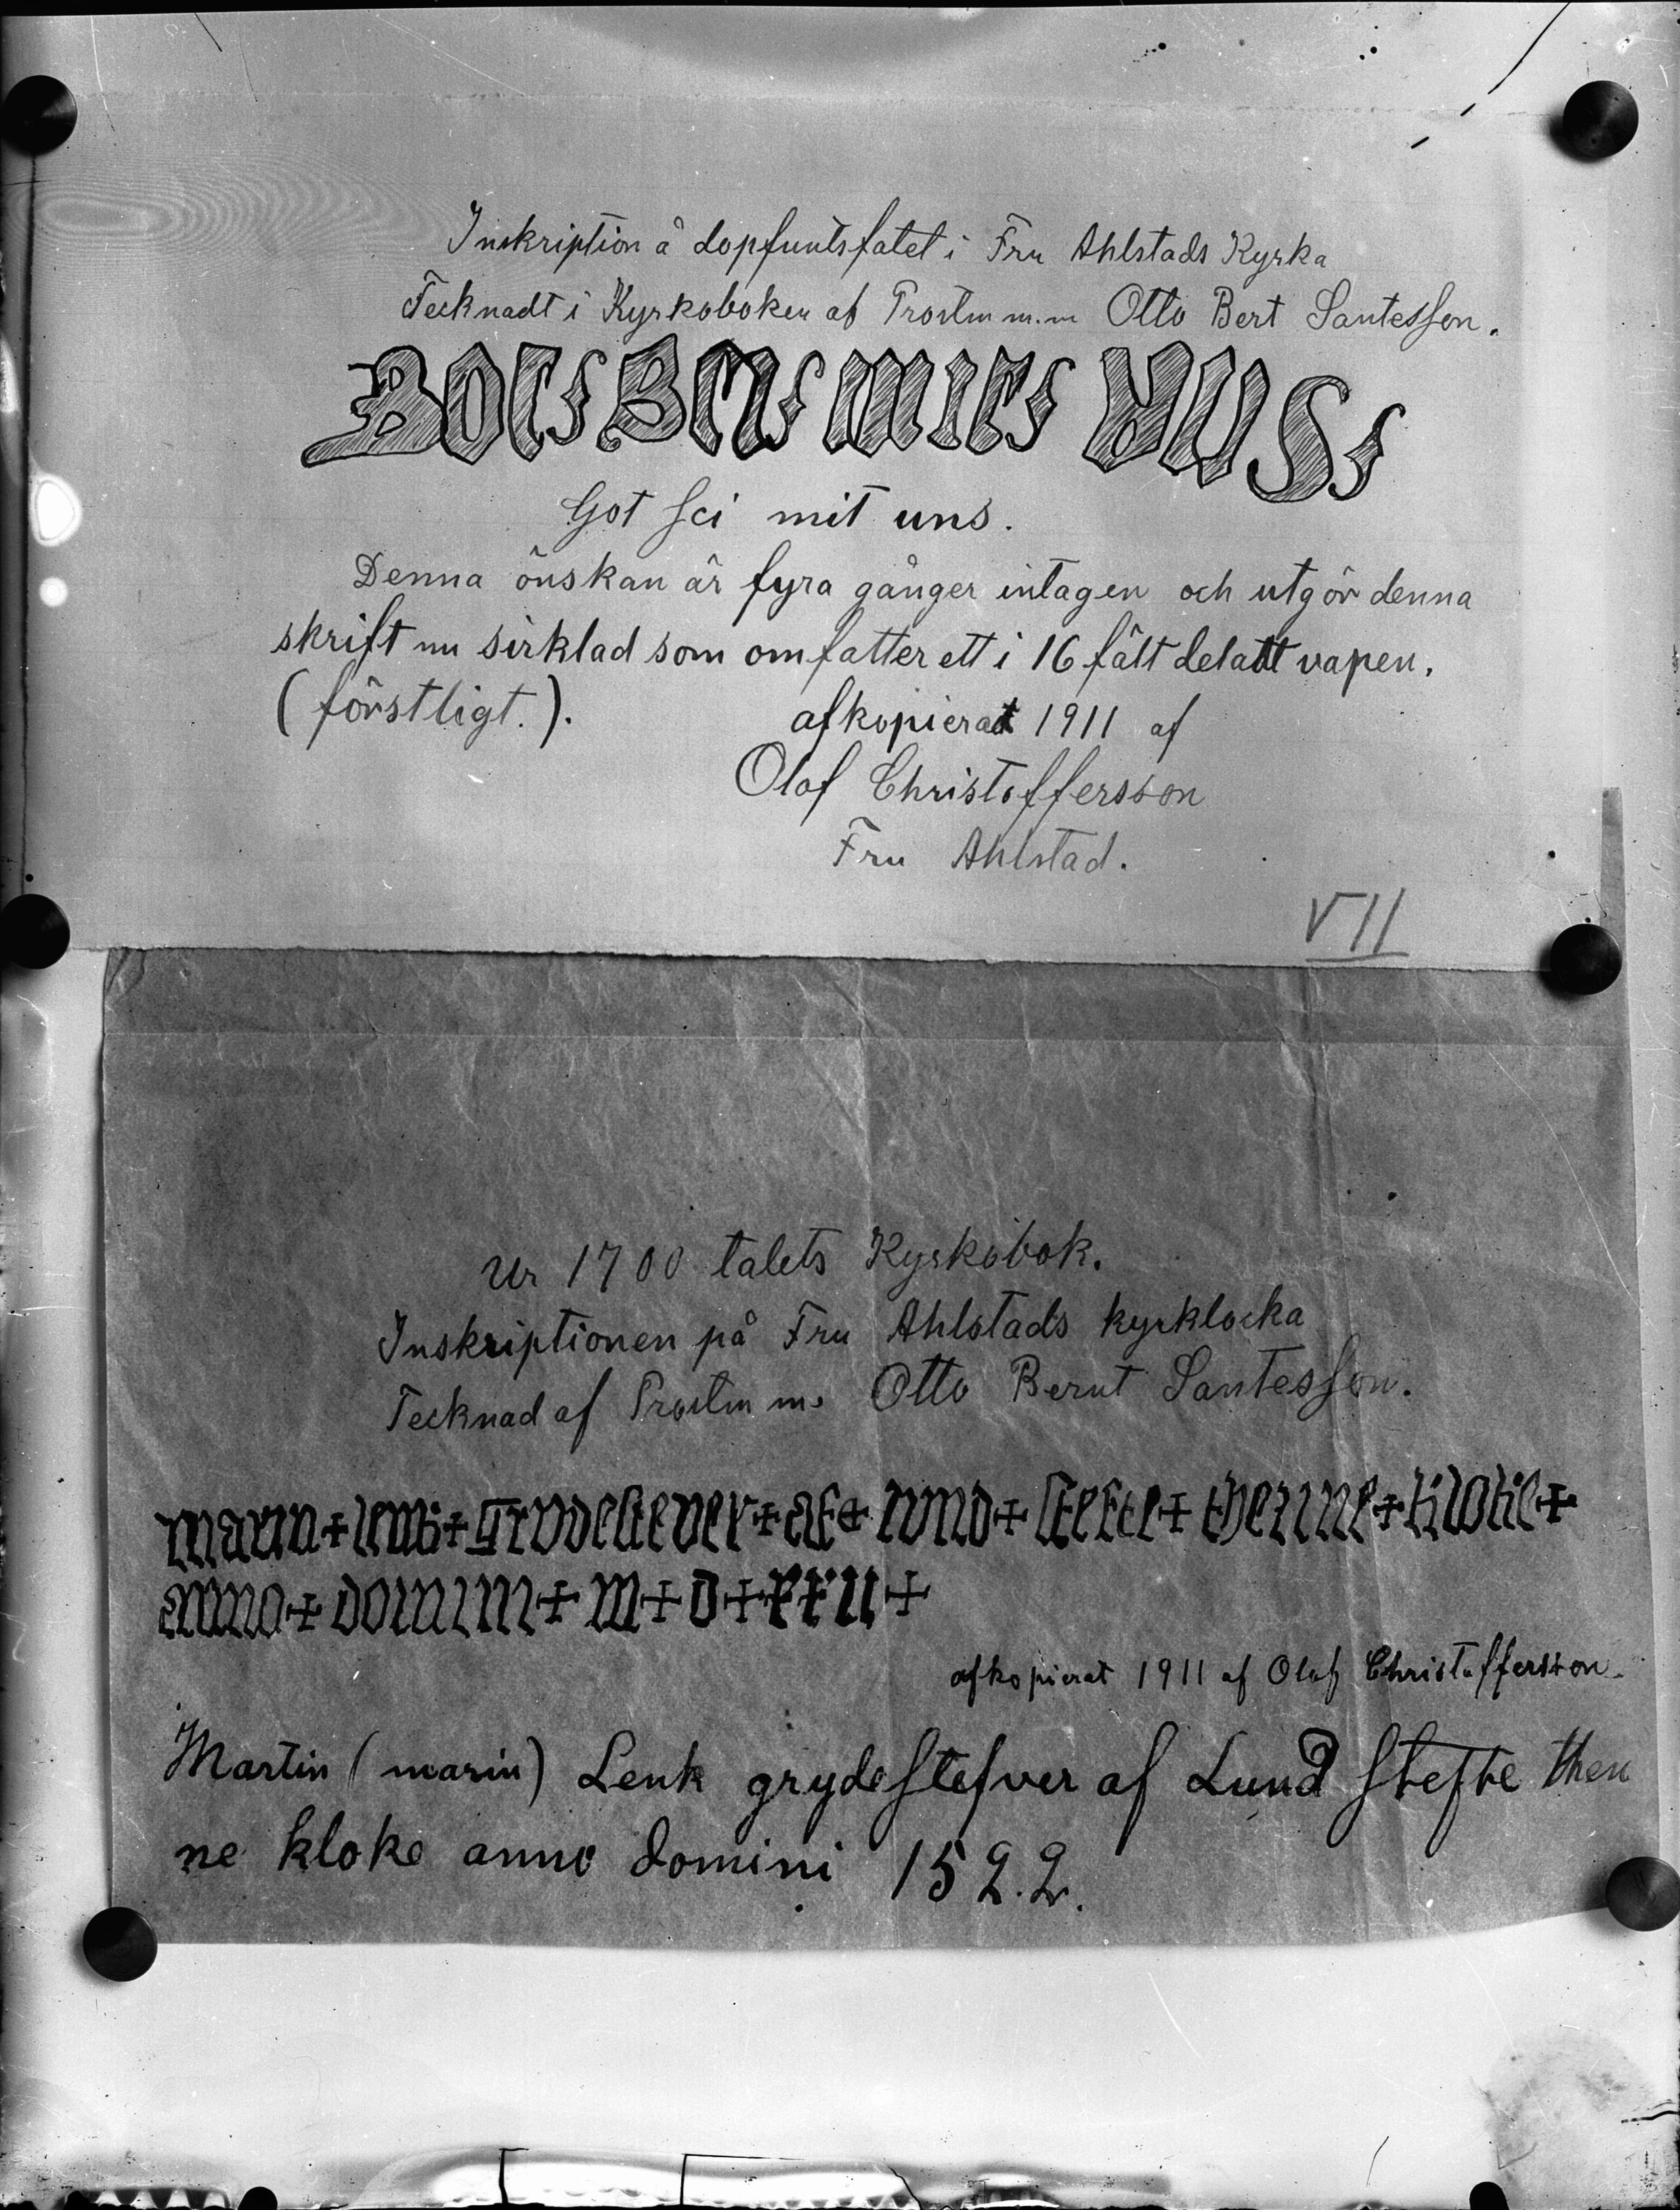 Inskription å dopfuntsfatet i Fru Ahlstads Kyrka
Tecknadt i Kyrkoboken af Prosten m.m Otto Bert Santesson.
Got sei mit uns.
Denna önskan är fyra gånger intagen och utgör denna
skrift nu sirklad som omfatter ett i 16 fält delatt vapen.
(förstligt.).
afkopierat 1911 af
Olof Christoffersson
Fru Ahlstad.
VII
Ur 1700 talets Kyrkobok.
Inskriptionen på Fru Ahlstads kyrklocka
Tecknad af Prosten m. Otto Bernt Santesson.
anno + domini + m + d + xxii +
afkopierat 1911 af Olof Christoffersson.
Martin (marin) Lenk grydestefver af Lund stefte then
ne kloke anno domini 1522.